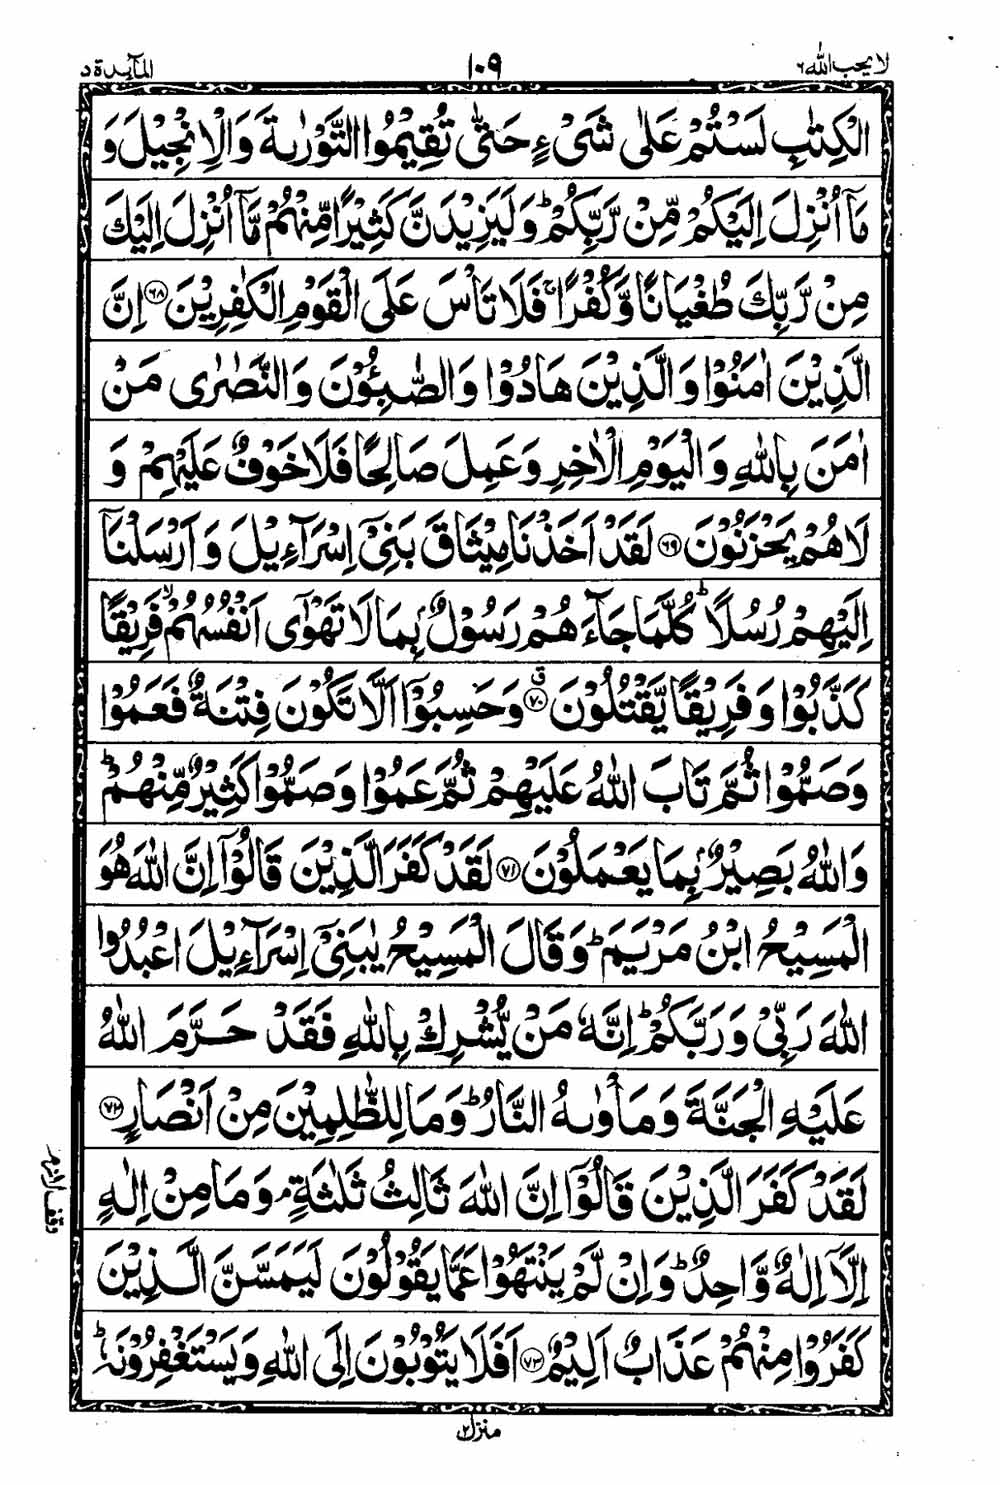 لا يحب الله ٦
١٠٩
المآئدة ٥
الْكِتٰبِ لَسْتُمْ عَلٰى شَىْءٍ حَتّٰى تُقِيْمُوا التَّوْرٰىةَ وَالْاِنْجِيْلَ وَ
مَاۤ اُنْزِلَ اِلَيْكُمْ مِّنْ رَّبِّكُمْ ؕ وَلَيَزِيْدَنَّ كَثِيْرًا مِّنْهُمْ مَّاۤ اُنْزِلَ اِلَيْكَ
مِنْ رَّبِّكَ طُغْيَانًا وَّكُفْرًا ۚ فَلَا تَاْسَ عَلَى الْقَوْمِ الْكٰفِرِيْنَ ﴿٦٨﴾ اِنَّ
الَّذِيْنَ اٰمَنُوْا وَالَّذِيْنَ هَادُوْا وَالصّٰبِئُوْنَ وَالنَّصٰرٰى مَنْ
اٰمَنَ بِاللّٰهِ وَالْيَوْمِ الْاٰخِرِ وَعَمِلَ صَالِحًا فَلَا خَوْفٌ عَلَيْهِمْ وَ
لَا هُمْ يَحْزَنُوْنَ ﴿٦٩﴾ لَقَدْ اَخَذْنَا مِيْثَاقَ بَنِىْۤ اِسْرَآءِيْلَ وَاَرْسَلْنَاۤ
اِلَيْهِمْ رُسُلًا ؕ كُلَّمَا جَآءَهُمْ رَسُوْلٌۢ بِمَا لَا تَهْوٰٓى اَنْفُسُهُمْ ۙ فَرِيْقًا
كَذَّبُوْا وَفَرِيْقًا يَّقْتُلُوْنَ ﴿٧٠﴾ ق وَحَسِبُوْۤا اَلَّا تَكُوْنَ فِتْنَةٌ فَعَمُوْا
وَصَمُّوْا ثُمَّ تَابَ اللّٰهُ عَلَيْهِمْ ثُمَّ عَمُوْا وَصَمُّوْا كَثِيْرٌ مِّنْهُمْ ؕ
وَاللّٰهُ بَصِيْرٌۢ بِمَا يَعْمَلُوْنَ ﴿٧١﴾ لَقَدْ كَفَرَ الَّذِيْنَ قَالُوْۤا اِنَّ اللّٰهَ هُوَ
الْمَسِيْحُ ابْنُ مَرْيَمَ ؕ وَقَالَ الْمَسِيْحُ يٰبَنِىْۤ اِسْرَآءِيْلَ اعْبُدُوا
اللّٰهَ رَبِّىْ وَرَبَّكُمْ ؕ اِنَّهٗ مَنْ يُّشْرِكْ بِاللّٰهِ فَقَدْ حَرَّمَ اللّٰهُ
عَلَيْهِ الْجَنَّةَ وَمَاْوٰىهُ النَّارُ ؕ وَمَا لِلظّٰلِمِيْنَ مِنْ اَنْصَارٍ ﴿٧٢﴾
لَقَدْ كَفَرَ الَّذِيْنَ قَالُوْۤا اِنَّ اللّٰهَ ثَالِثُ ثَلٰثَةٍ ۘ وَمَا مِنْ اِلٰهٍ
وقف لازم
اِلَّاۤ اِلٰهٌ وَّاحِدٌ ؕ وَاِنْ لَّمْ يَنْتَهُوْا عَمَّا يَقُوْلُوْنَ لَيَمَسَّنَّ الَّذِيْنَ
كَفَرُوْا مِنْهُمْ عَذَابٌ اَلِيْمٌ ﴿٧٣﴾ اَفَلَا يَتُوْبُوْنَ اِلَى اللّٰهِ وَيَسْتَغْفِرُوْنَهٗ ؕ
منزل ٢